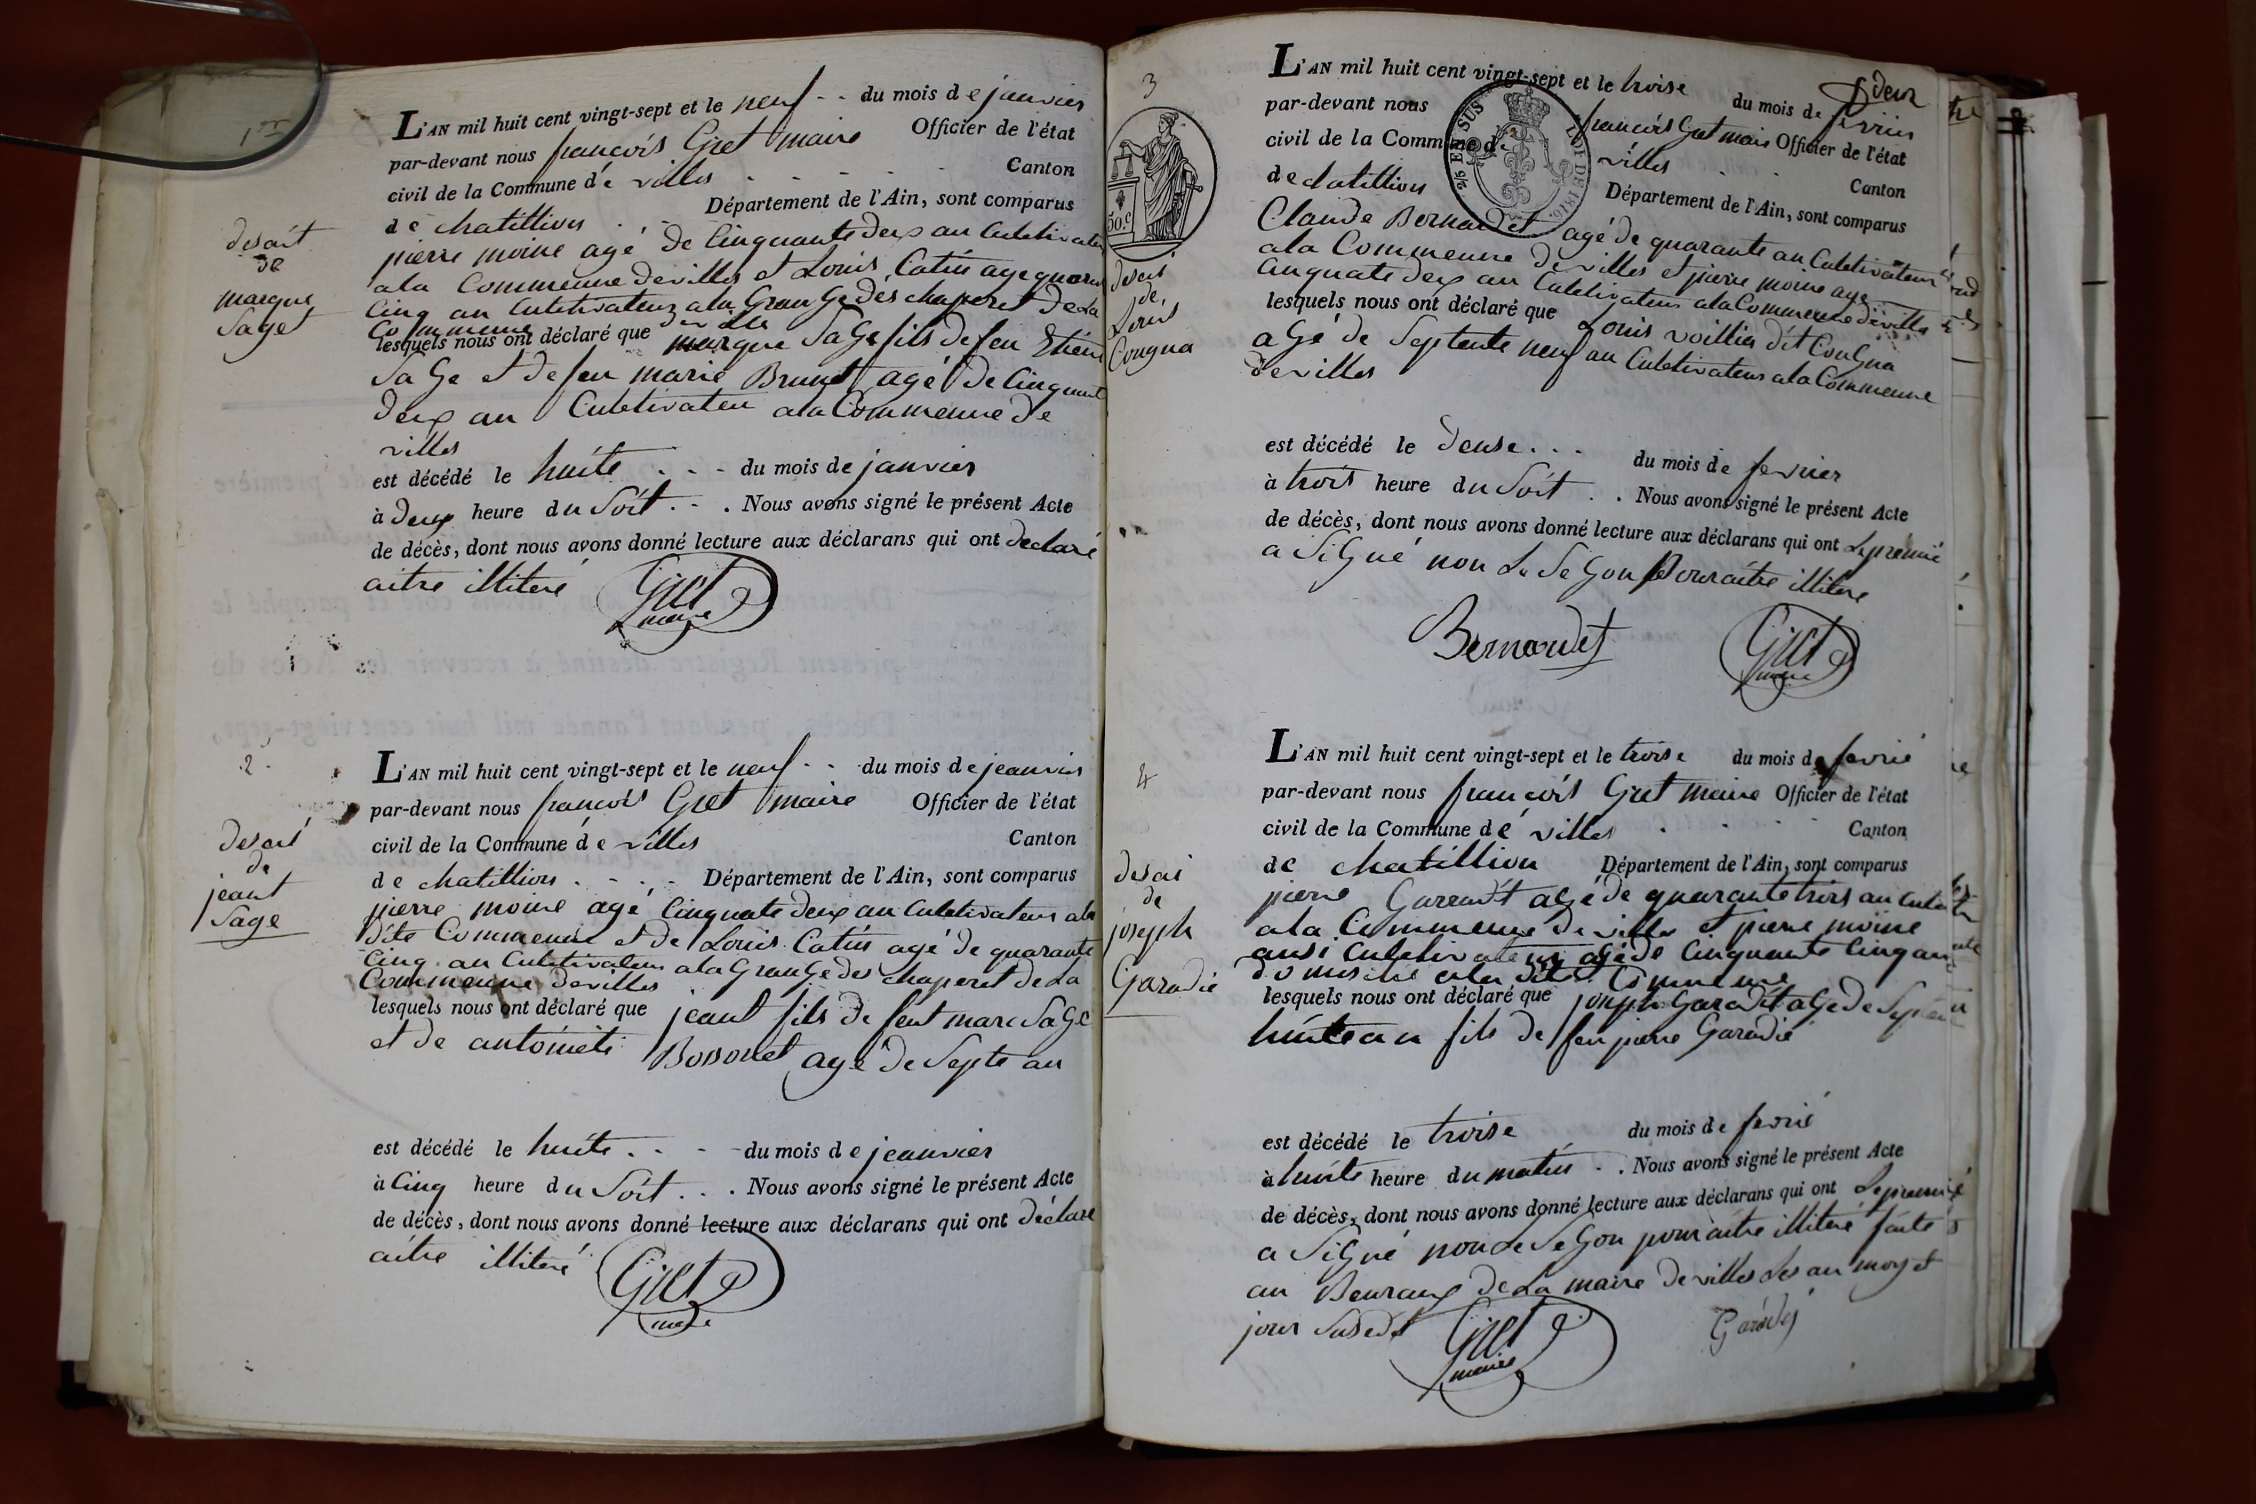 1er
L'AN mil huit cent vingt-sept et le neuf - - du mois de janvier
par-devant nous francois Gret maire Officier de l'état
civil de la Commune dé villes - - - - - Canton
de chatillion - - Département de l'Ain, sont comparus
pierre moine agé de Cinquante deux an Cultivateur
ala Commeune de villes et Louis Catin age quarante
Cinq an Cultivateur ala Grange des chaperet de La
Commeune de ville
lesquels nous ont déclaré que marque Sage fils de feu Etienne
Sage et de feu marie Brunet agé de Cinquante
deux an Cultivateu ala Commeune de
villes
est décédé le huite . - - du mois de janvier
à deux heure du Soit . - . Nous avons signé le présent Acte
de décès, dont nous avons donné lecture aux déclarans qui ont declaré
aitre illiteré
Gret
maire
desait
de
marque
Sage
2
L'AN mil huit cent vingt-sept et le neuf - - du mois de jeanvier
par-devant nous francois Gret maire Officier de l'état
civil de la Commune dé villes Canton
de chatillion . - . - Département de l'Ain, sont comparus
pierre moine agé Cinquate deux an Cultivateur ala
dite Commeune et de Louis Catin agé de quarante
Cinq an Cultivateur ala Grange des chaperet de La
Commeune de villes
lesquels nous ont déclaré que jeant fils de feut marc Sage
et de Bossonet agé de Septe an
est décédé le huite . - - du mois de jeanvier
à Cinq heure du Soit . . . Nous avons signé le présent Acte
de décès, dont nous avons donné lecture aux déclarans qui ont déclare
aitre illiteré
Gret
maire
desait
de
jeant
Sage
deux
3
L'AN mil huit cent vingt-sept et le troise du mois de fevrier
par-devant nous francois Gret maire Officier de l'état
civil de la Commune de villes . . Canton
de chatillion Département de l'Ain, sont comparus
Claude Bernardet agé de quarante an Cultivateur
ala Commeune de villes et pierre moine age
Cinquate deux an Cultivateur ala Commeune de villes
lesquels nous ont déclaré que Louis voillier dit Cougna
agé de Septente neuf an Cultivateur ala Commeune
de villes
est décédé le deuse . . . du mois de fevrier
à trois heure du Soit . . Nous avons signé le présent Acte
de décès, dont nous avons donné lecture aux déclarans qui ont Le premié
a Signé non Le Segon Pour aitre illitere
Bernardet
Gret
maire
50.c
2/5 EN SUS
LOI DE 1816.
desai
de
Louis
Cougna
4
L'AN mil huit cent vingt-sept et le troise du mois de fevrié
par-devant nous francois Gret maire Officier de l'état
civil de la Commune dé villes . . . . Canton
de chatillion Département de l'Ain, sont comparus
pierre agé de quarante trois an
ala Commeune de villes et pierre moine
ausi Cultivateur agé de Cinquante Cinq an
ala dite Commeune
lesquels nous ont déclaré que joseph Garadit age de
huite an fils de feu pierre Garadié
est décédé le troise du mois de fevrié
à huite heure du matin . . Nous avons signé le présent Acte
de décès, dont nous avons donné lecture aux déclarans qui ont Le premié
a Signé non Le Segon pour aitre illiteré faite
au Beuraux de La maire de villes Les an moy et
jour Susedit
Gret
maire
desai
de
joseph
Garadié